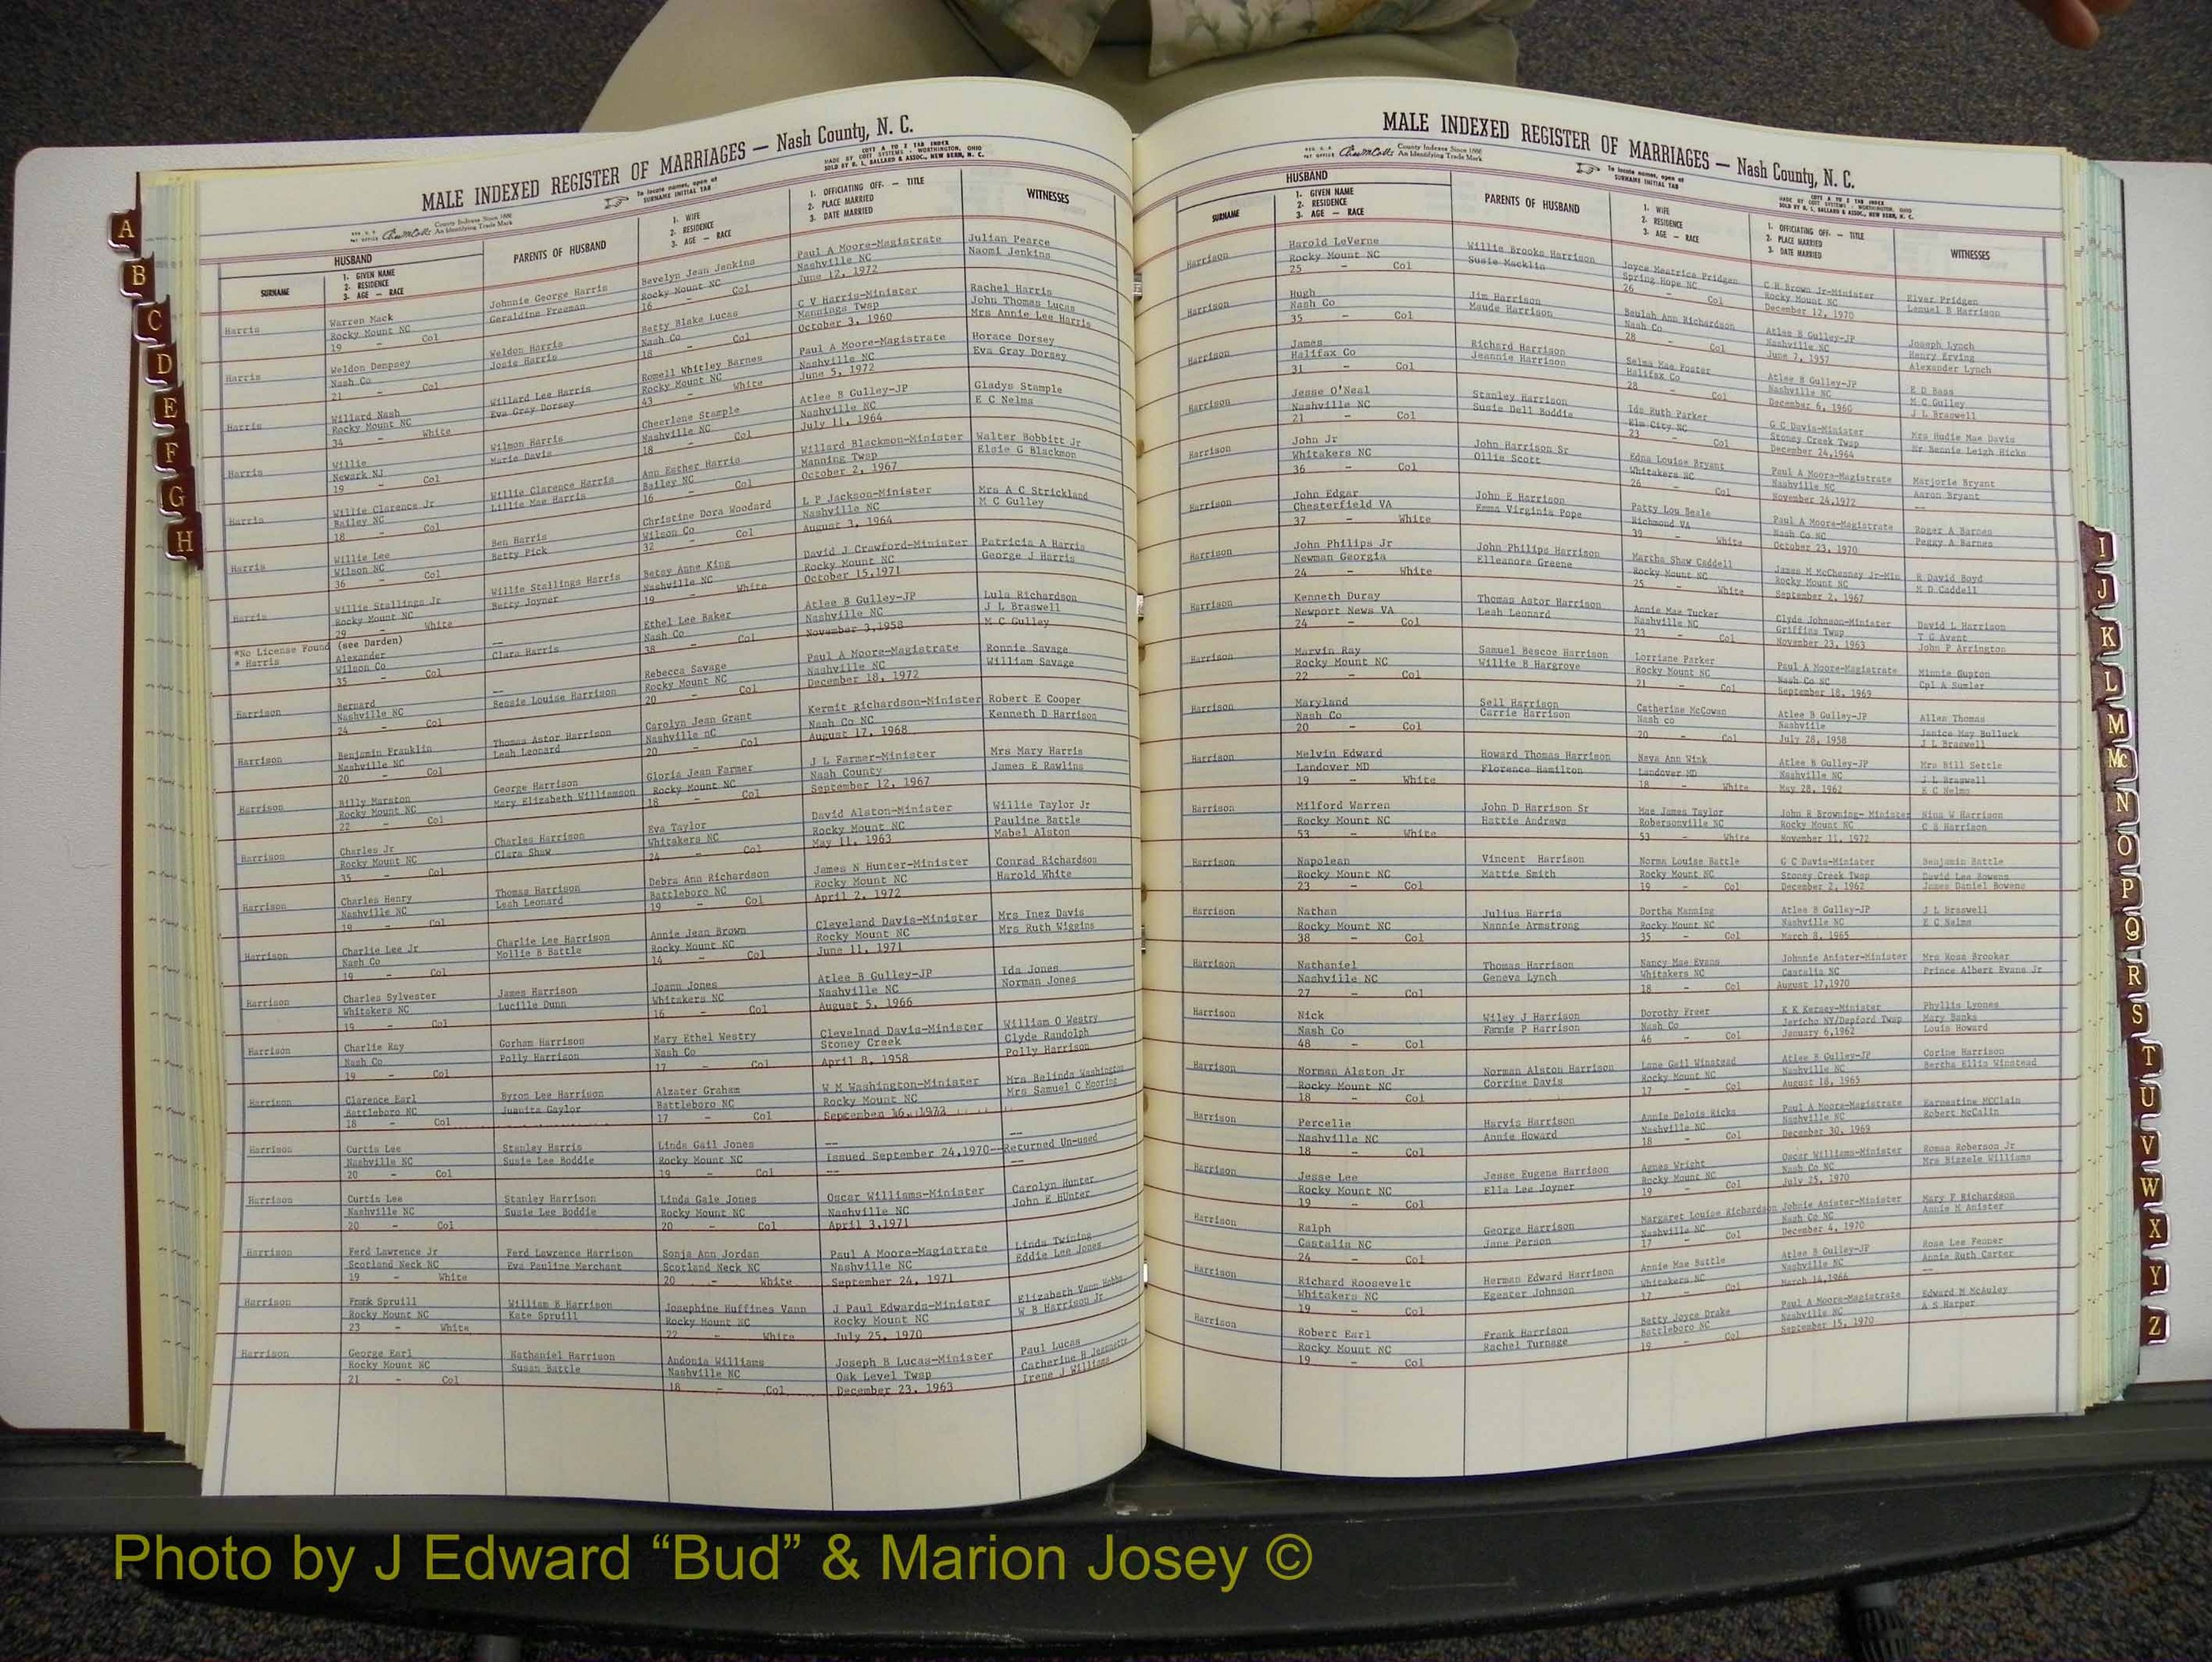 MALE INDEXED REGISTER OF MARRIAGES — Nash County, N. C.
County Indexes Since 1888
An Identifying Trade Mark
To locate names, open at
SURNAME INITIAL TAB
COTT A TO Z TAB INDEX
MADE BY COTT SYSTEMS - WORTHINGTON, OHIO
SOLD BY R. L. BALLARD & ASSOC., NEW BERN, N. C.
HUSBAND
SURNAME
1. GIVEN NAME
2. RESIDENCE
3. AGE — RACE
PARENTS OF HUSBAND
1. WIFE
2. RESIDENCE
3. AGE — RACE
1. OFFICIATING OFF. — TITLE
2. PLACE MARRIED
3. DATE MARRIED
WITNESSES
Harris Warren Mack Johnnie George Harris Bevelyn Jean Jenkins Paul A Moore-Magistrate Julian Pearce
Rocky Mount NC Geraldine Freeman Rocky Mount NC Nashville NC Naomi Jenkins
19 - Col 16 - Col June 12, 1972
Harris Weldon Dempsey Weldon Harris Betty Blake Lucas C V Harris-Minister Rachel Harris
Nash Co Josie Harris Nash Co Mannings Twsp John Thomas Lucas
21 - Col 18 - Col October 3, 1960 Mrs Annie Lee Harris
Harris Willard Nash Willard Lee Harris Romell Whitley Barnes Paul A Moore-Magistrate Horace Dorsey
Rocky Mount NC Eva Gray Dorsey Rocky Mount NC Nashville NC Eva Gray Dorsey
34 - White 43 - White June 5, 1972
Harris Willie Wilmon Harris Cheerlene Stample Atlee B Gulley-JP Gladys Stample
Newark NJ Marie Davis Nashville NC Nashville NC E C Nelms
19 - Col 18 - Col July 11, 1964
Harris Willie Clarence Jr Willie Clarence Harris Ann Esther Harris Willard Blackmon-Minister Walter Bobbitt Jr
Bailey NC Lillie Mae Harris Bailey NC Manning Twsp Elsie G Blackmon
18 - Col 16 - Col October 2, 1967
Harris Willie Lee Ben Harris Christine Dora Woodard L P Jackson-Minister Mrs A C Strickland
Wilson NC Betty Pick Wilson Co Nashville NC M C Gulley
36 - Col 32 - Col August 3, 1964
Harris Willie Stallings Jr Willie Stallings Harris Betsy Anne King David J Crawford-Minister Patricia A Harris
Rocky Mount NC Betty Joyner Nashville NC Rocky Mount NC George J Harris
29 - White 19 - White October 15,1971
*No License Found (see Darden)
* Harris Alexander -- Ethel Lee Baker Atlee B Gulley-JP Lula Richardson
Wilson Co Clara Harris Nash Co Nashville NC J L Braswell
35 - Col 38 - Col November 3,1958 M C Gulley
Harrison Bernard -- Rebecca Savage Paul A Moore-Magistrate Ronnie Savage
Nashville NC Bessie Louise Harrison Rocky Mount NC Nashville NC William Savage
24 - Col 20 - Col December 18, 1972
Harrison Benjamin Franklin Thomas Astor Harrison Carolyn Jean Grant Kermit Richardson-Minister Robert E Cooper
Nashville NC Leah Leonard Nashville nC Nash Co NC Kenneth D Harrison
20 - Col 20 - Col August 17, 1968
Harrison Billy Marston George Harrison Gloria Jean Farmer J L Farmer-Minister Mrs Mary Harris
Rocky Mount NC Mary Elizabeth Williamson Rocky Mount NC Nash County James E Rawlins
22 - Col 18 - Col September 12, 1967
Harrison Charles Jr Charles Harrison Eva Taylor David Alston-Minister Willie Taylor Jr
Rocky Mount NC Clara Shaw Whitakers NC Rocky Mount NC Pauline Battle
35 - Col 24 - Col May 11, 1963 Mabel Alston
Harrison Charles Henry Thomas Harrison Debra Ann Richardson James N Hunter-Minister Conrad Richardson
Nashville NC Leah Leonard Battleboro NC Rocky Mount NC Harold White
19 - Col 19 - Col April 2, 1972
Harrison Charlie Lee Jr Charlie Lee Harrison Annie Jean Brown Cleveland Davis-Minister Mrs Inez Davis
Nash Co Mollie B Battle Rocky Mount NC Rocky Mount NC Mrs Ruth Wiggins
19 - Col 14 - Col June 11, 1971
Harrison Charles Sylvester James Harrison Joann Jones Atlee B Gulley-JP Ida Jones
Whitakers NC Lucille Dunn Whitakers NC Nashville NC Norman Jones
19 - Col 16 - Col August 5, 1966
Harrison Charlie Ray Gorham Harrison Mary Ethel Westry Clevelnad Davis-Minister William O Westry
Nash Co Polly Harrison Nash Co Stoney Creek Clyde Randolph
19 - Col 17 - Col April 8, 1958 Polly Harrison
Harrison Clarence Earl Byron Lee Harrison Alzater Graham W M Washington-Minister Mrs Belinda Washington
Battleboro NC Juanita Gaylor Battleboro NC Rocky Mount NC Mrs Samuel C Mooring
18 - Col 17 - Col September 16, 1972
Harrison Curtis Lee Stanley Harris Linda Gail Jones -- --
Nashville NC Susie Lee Boddie Rocky Mount NC Issued September 24,1970--Returned Un-used
20 - Col 19 - Col -- --
Harrison Curtis Lee Stanley Harrison Linda Gale Jones Oscar Williams-Minister Carolyn Hunter
Nashville NC Susie Lee Boddie Rocky Mount NC Nashville NC John E HUnter
20 - Col 20 - Col April 3,1971
Harrison Ferd Lawrence Jr Ferd Lawrence Harrison Sonja Ann Jordan Paul A Moore-Magistrate Linda Twining
Scotland Neck NC Eva Pauline Merchant Scotland Neck NC Nashville NC Eddie Lee Jones
19 - White 20 - White September 24, 1971
Harrison Frank Spruill William B Harrison Josephine Huffines Vann J Paul Edwards-Minister Elizabeth Vann Hobbs
Rocky Mount NC Kate Spruill Rocky Mount NC Rocky Mount NC W B Harrison Jr
23 - White 22 - White July 25, 1970
Harrison George Earl Nathaniel Harrison Andonia Williams Joseph B Lucas-Minister Paul Lucas
Rocky Mount NC Susan Battle Nashville NC Oak Level Twsp Catherine H
21 - Col 18 - Col December 23, 1963 Irene J Williams
MALE INDEXED REGISTER OF MARRIAGES — Nash County, N. C.
County Indexes Since 1888
An Identifying Trade Mark
To locate names, open at
SURNAME INITIAL TAB
COTT A TO Z TAB INDEX
MADE BY COTT SYSTEMS - WORTHINGTON, OHIO
SOLD BY R. L. BALLARD & ASSOC., NEW BERN, N. C.
HUSBAND
SURNAME
1. GIVEN NAME
2. RESIDENCE
3. AGE — RACE
PARENTS OF HUSBAND
1. WIFE
2. RESIDENCE
3. AGE — RACE
1. OFFICIATING OFF. — TITLE
2. PLACE MARRIED
3. DATE MARRIED
WITNESSES
Harrison Harold LeVerne Willie Brooks Harrison Joyce Meatrice Pridgen C H Brown Jr-Minister Elver Pridgen
Rocky Mount NC Susie Macklin Spring Hope NC Rocky Mount NC Lemuel B Harrison
25 - Col 26 - Col December 12, 1970
Harrison Hugh Jim Harrison Beulah Ann Richardson Atlee B Gulley-JP Joseph Lynch
Nash Co Maude Harrison Nash Co Nashville NC Henry Erving
35 - Col 28 - Col June 7, 1957 Alexander Lynch
Harrison James Richard Harrison Selma Mae Foster Atlee B Gulley-JP E D Bass
Halifax Co Jeannie Harrison Halifax Co Nashville NC M C Gulley
31 - Col 28 - Col December 6, 1960 J L Braswell
Harrison Jesse O'Neal Stanley Harrison Ida Ruth Parker G C Davis-Minister Mrs Hudie Mae Davis
Nashville NC Susie Dell Boddie Elm City NC Stoney Creek Twsp Mr Bennie Leigh Hicks
21 - Col 23 - Col December 24,1964
Harrison John Jr John Harrison Sr Edna Louise Bryant Paul A Moore-Magistrate Marjorie Bryant
Whitakers NC Ollie Scott Whitakers NC Nashville NC Aaron Bryant
36 - Col 26 - Col November 24,1972 --
Harrison John Edgar John E Harrison Patty Lou Beale Paul A Moore-Magistrate Roger A Barnes
Chesterfield VA Emma Virginia Pope Richmond VA Nash Co NC Peggy A Barnes
37 - White 39 - White October 23, 1970
Harrison John Philips Jr John Philips Harrison Martha Shaw Caddell James M McChesney Jr-Min R David Boyd
Newman Georgia Elleanore Greene Rocky Mount NC Rocky Mount NC M D Caddell
24 - White 25 - White September 2, 1967
Harrison Kenneth Duray Thomas Astor Harrison Annie Mae Tucker Clyde Johnson-Minister David L Harrison
Newport News VA Leah Leonard Nashville NC Griffins Twsp T G Avent
24 - Col 23 - Col November 23, 1963 John P Arrington
Harrison Marvin Ray Samuel Bescoe Harrison Lorriane Parker Paul A Moore-Magistrate Minnie Gupton
Rocky Mount NC Willie B Hargrove Rocky Mount NC Nash Co NC Cpl A Sumler
22 - Col 21 - Col September 18, 1969
Harrison Maryland Sell Harrison Catherine McCowan Atlee B Gulley-JP Allen Thomas
Nash Co Carrie Harrison Nash co Nashville Janice May Bulluck
20 - Col 20 - Col July 28, 1958 J L Braswell
Harrison Melvin Edward Howard Thomas Harrison Neva Ann Wink Atlee B Gulley-JP Mrs Bill Settle
Landover MD Florence Hamilton Landover MD Nashville NC J L Braswell
19 - White 18 - White May 28, 1962 E C Nelms
Harrison Milford Warren John D Harrison Sr Mae James Taylor John R Browning- Minister Nina W Harrison
Rocky Mount NC Hattie Andrews Robersonville NC Rocky Mount NC C B Harrison
53 - White 53 - White November 11, 1972
Harrison Napolean Vincent Harrison Norma Louise Battle G C Davis-Minister Benjamin Battle
Rocky Mount NC Mattie Smith Rocky Mount NC Stoney Creek Twsp David Lee Bowens
23 - Col 19 - Col December 2, 1962 James Daniel Bowens
Harrison Nathan Julius Harris Dortha Manning Atlee B Gulley-JP J L Braswell
Rocky Mount NC Nannie Armstrong Rocky Mount NC Nashville NC E C Nelms
38 - Col 35 - Col March 8, 1965
Harrison Nathaniel Thomas Harrison Nancy Mae Evans Johnnie Anister-Minister Mrs Rosa Brooker
Nashville NC Geneva Lynch Whitakers NC Castalia NC Prince Albert Evans Jr
27 - Col 18 - Col August 17,1970
Harrison Nick Wiley J Harrison Dorothy Freer K K Kersey-Minister Phyllis Lyones
Nash Co Fannie P Harrison Nash Co Jericho NY/Depford Twsp Mary Banks
48 - Col 46 - Col January 6,1962 Louis Howard
Harrison Norman Alston Jr Norman Alston Harrison Lane Gail Winstead Atlee B Gulley-JP Corine Harrison
Rocky Mount NC Corrine Davis Rocky Mount NC Nashville NC Bertha Ellis Winstead
18 - Col 17 - Col August 18, 1965
Harrison Percelle Harvis Harrison Annie Delois Ricks Paul A Moore-Magistrate Earnestine MCClain
Nashville NC Annie Howard Nashville NC Nashville NC Robert McCalin
18 - Col 18 - Col December 30, 1969
Harrison Jesse Lee Jesse Eugene Harrison Agnes Wright Oscar Williams-Minister Romas Roberson Jr
Rocky Mount NC Ella Lee Joyner Rocky Mount NC Nash Co NC Mrs Bizzele Williams
19 - Col 19 - Col July 25, 1970
Harrison Ralph George Harrison Margaret Louise Richardson Johnie Anister-Minister Mary F Richardson
Castalia NC Jane Person Nashville NC Nash Co NC Annie M Anister
24 - Col 17 - Col December 4, 1970
Harrison Richard Roosevelt Herman Edward Harrison Annie Mae Battle Atlee B Gulley-JP Rose Lee Fenner
Whitakers NC Egester Johnson Whitakers NC Nashville NC Annie Ruth Carter
19 - Col 17 - Col March 14,1966 --
Harrison Robert Earl Frank Harrison Betty Joyce Drake Paul A Moore-Magistrate Edward M McAuley
Rocky Mount NC Rachel Turnage Battleboro NC Nashville NC A S Harper
19 - Col 19 - Col September 15, 1970
A
B
C
D
E
F
G
H
I
J
K
L
M
Mc
N
O
P
Q
R
S
T
U
V
W
X
Y
Z
Photo by J Edward “Bud” & Marion Josey ©